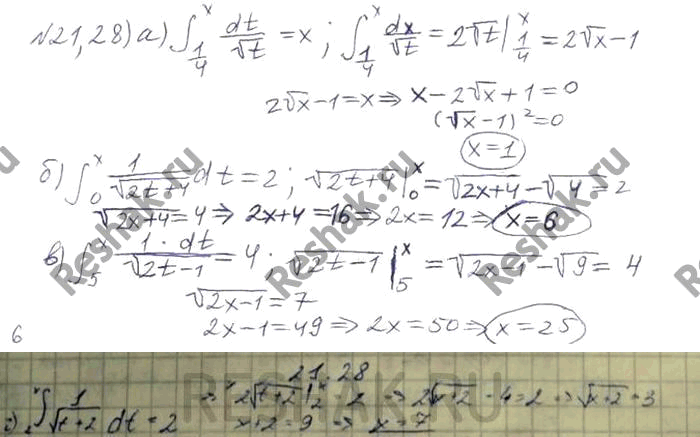 №21,28) а) ∫_{1/4}^{x} dt/√t = x ; ∫_{1/4}^{x} dx/√t = 2√t |_{1/4}^{x} = 2√x - 1
2√x - 1 = x ⇒ x - 2√x + 1 = 0
(√x - 1)² = 0
x = 1
б) ∫_{0}^{x} 1/√(2t+4) dt = 2 ; √(2t+4) |_{0}^{x} = √(2x+4) - √4 = 2
√(2x+4) = 4 ⇒ 2x+4 = 16 ⇒ 2x = 12 ⇒ x = 6
в) ∫_{5}^{x} 1·dt/√(2t-1) = 4 ; √(2t-1) |_{5}^{x} = √(2x-1) - √9 = 4
√(2x-1) = 7
2x-1 = 49 ⇒ 2x = 50 ⇒ x = 25
6
21.28
г) ∫_{2}^{x} 1/√(t+2) dt = 2 ⇒ 2√(t+2) |_{2}^{x} = 2 ⇒ 2√(x+2) - 4 = 2 ⇒ √(x+2) = 3
x+2 = 9 ⇒ x = 7
Reshak.ru
Reshak.ru
Reshak.ru
RESHAK.RU